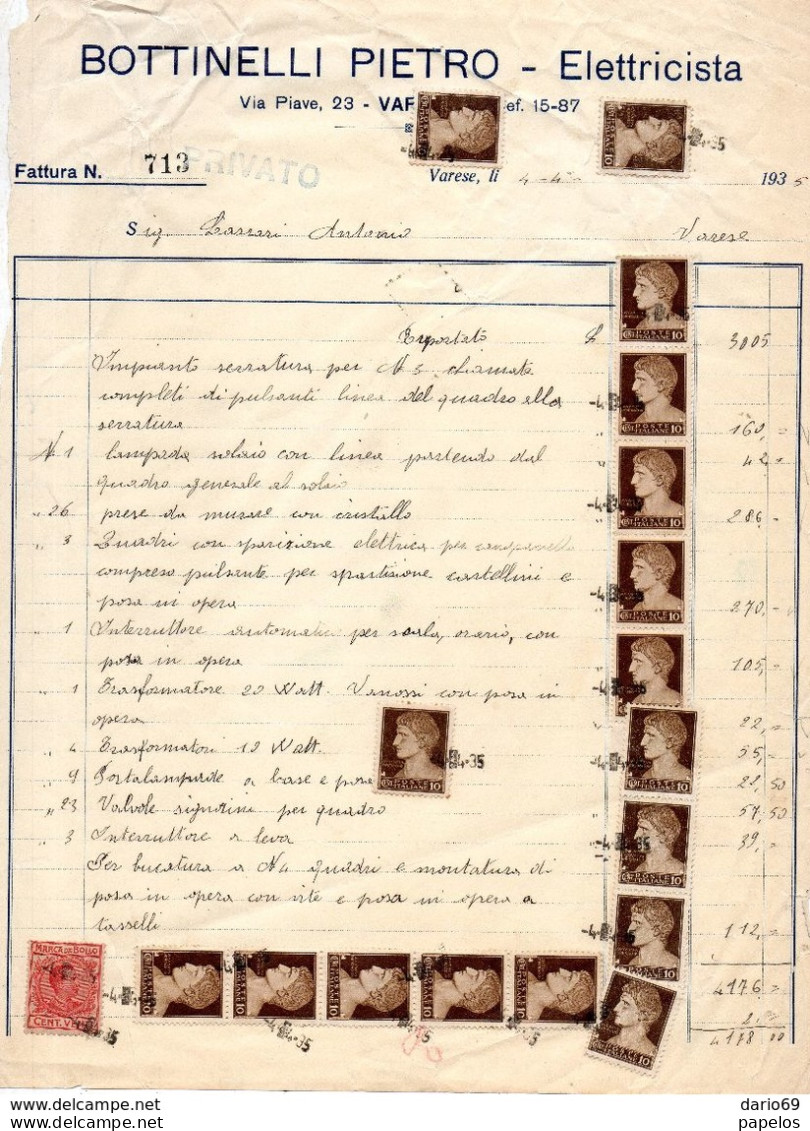 BOTTINELLI PIETRO - Elettricista
Via Piave, 23 - VAR ef. 15-87
Fattura N. 713
PRIVATO
Varese, li 4-4- 1935
Sig. Antonio Varese
Riportato L 3005
Impianto serratura per N 3 chiamate
completi di pulsanti linea del quadro alla
serratura " 160,=
N. 1 lampada solaio con linea partendo dal " 42=
quadro generale al solaio
" 26 prese da murare con cristallo " 286=
" 3 Quadri con sparizione elettrica per campanello
compreso pulsante per spartizione castellini e
posa in opera 270,=
" 1 Interruttore automatico per scala, orario, con
posa in opera 105,=
" 1 Trasformatore 20 Watt. Vanossi con posa in
opera 22,=
" 4 Trasformatori 12 Watt. 55,=
" 9 Portalampade a base e posa 22,50
" 23 Valvole signorini per quadro 57,50
" 3 Interruttore a leva 39,=
Per bucatura a N4 quadri e montatura di
posa in opera con vite e posa in opera a
tasselli 112,=
4176=
4178
MARCA DA BOLLO
CENT. VE
POSTE ITALIANE 10
-4.4.35
dario69
https://www.delcampe.net
papelos